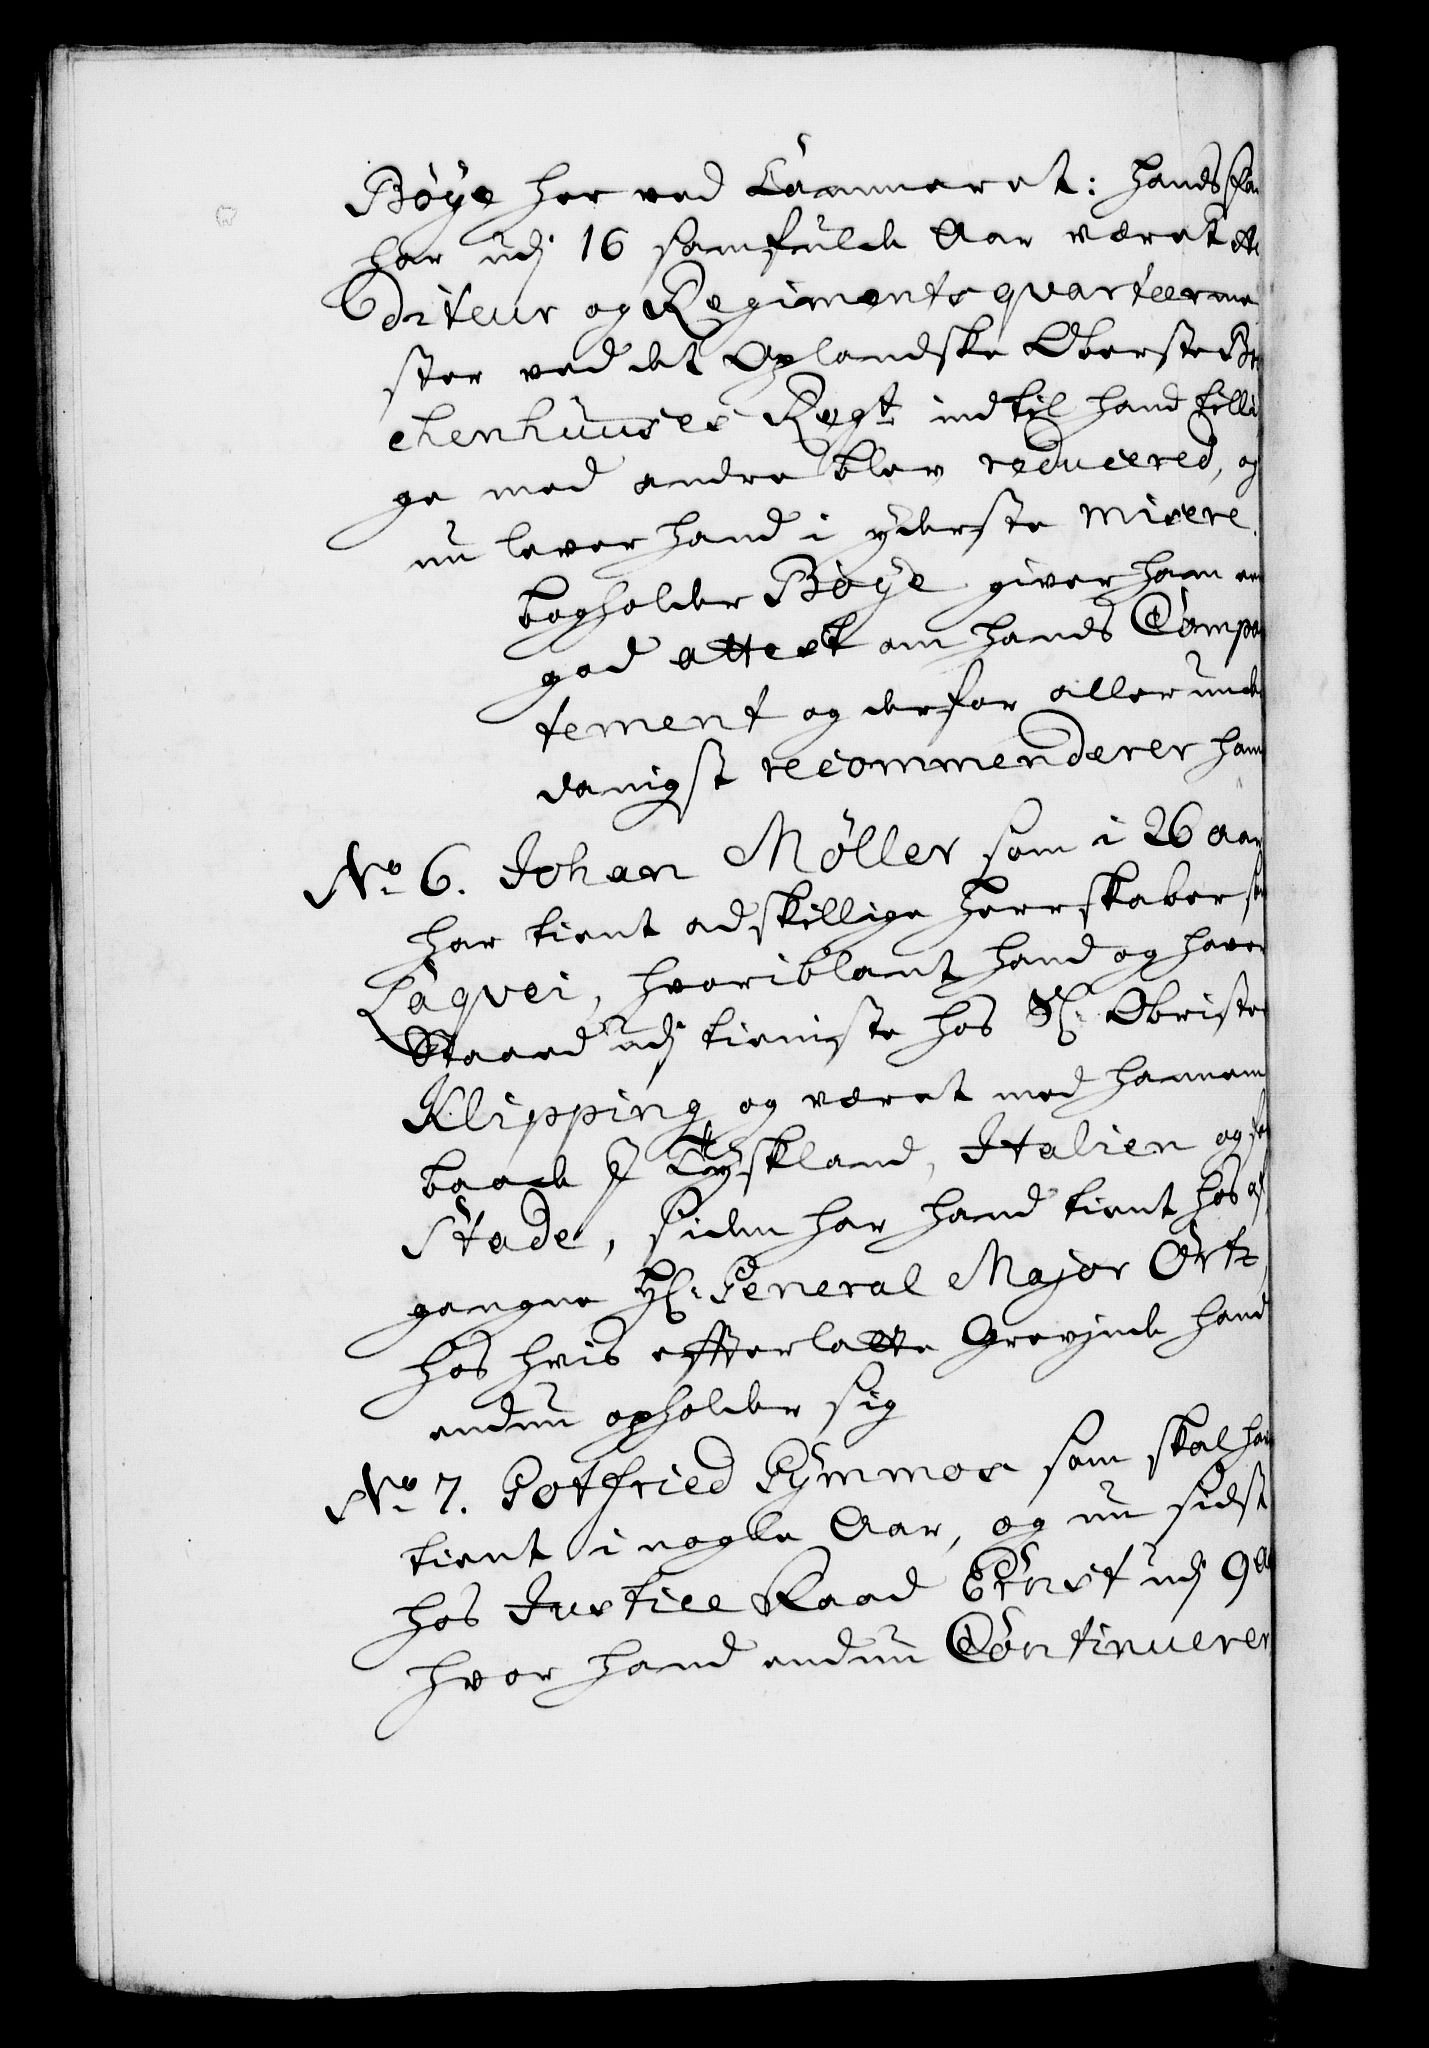 Böÿe her ved Cammeret: hands
har udj 16 samfulde Aar været
diteur og Regimentsqvarteerme
ster ved det Oplandske Oberste Br
chenhuuses Regt. indtil hand tilli
ge med andre blev reducered, og
nu lever hand i yderste misere.
bogholder Böÿe giver ham en
god attest om hands Compor
tement og derfor allerunder
danigst recommenderer ham
No. 6. Johan Möller som i 26 aar
har tient adskillige Herrskaber
Laqvei, hvoriblant hand og haver
Staaed udj tieniste hos Sl. Obriste
Klipping og været med hannem
baade i Tyskland, Italien og
Stade, siden har hand tient hos af
gangne Hr. General Major Ortz,
hos hvis efterlatte Grevinde hand
endnu opholder sig
No. 7. Gotfried Gÿmmos som skal
tient i nogle Aar, og nu sidst
hos Justice Raad Ernst udj 9
hvor hand endnu Continuerer